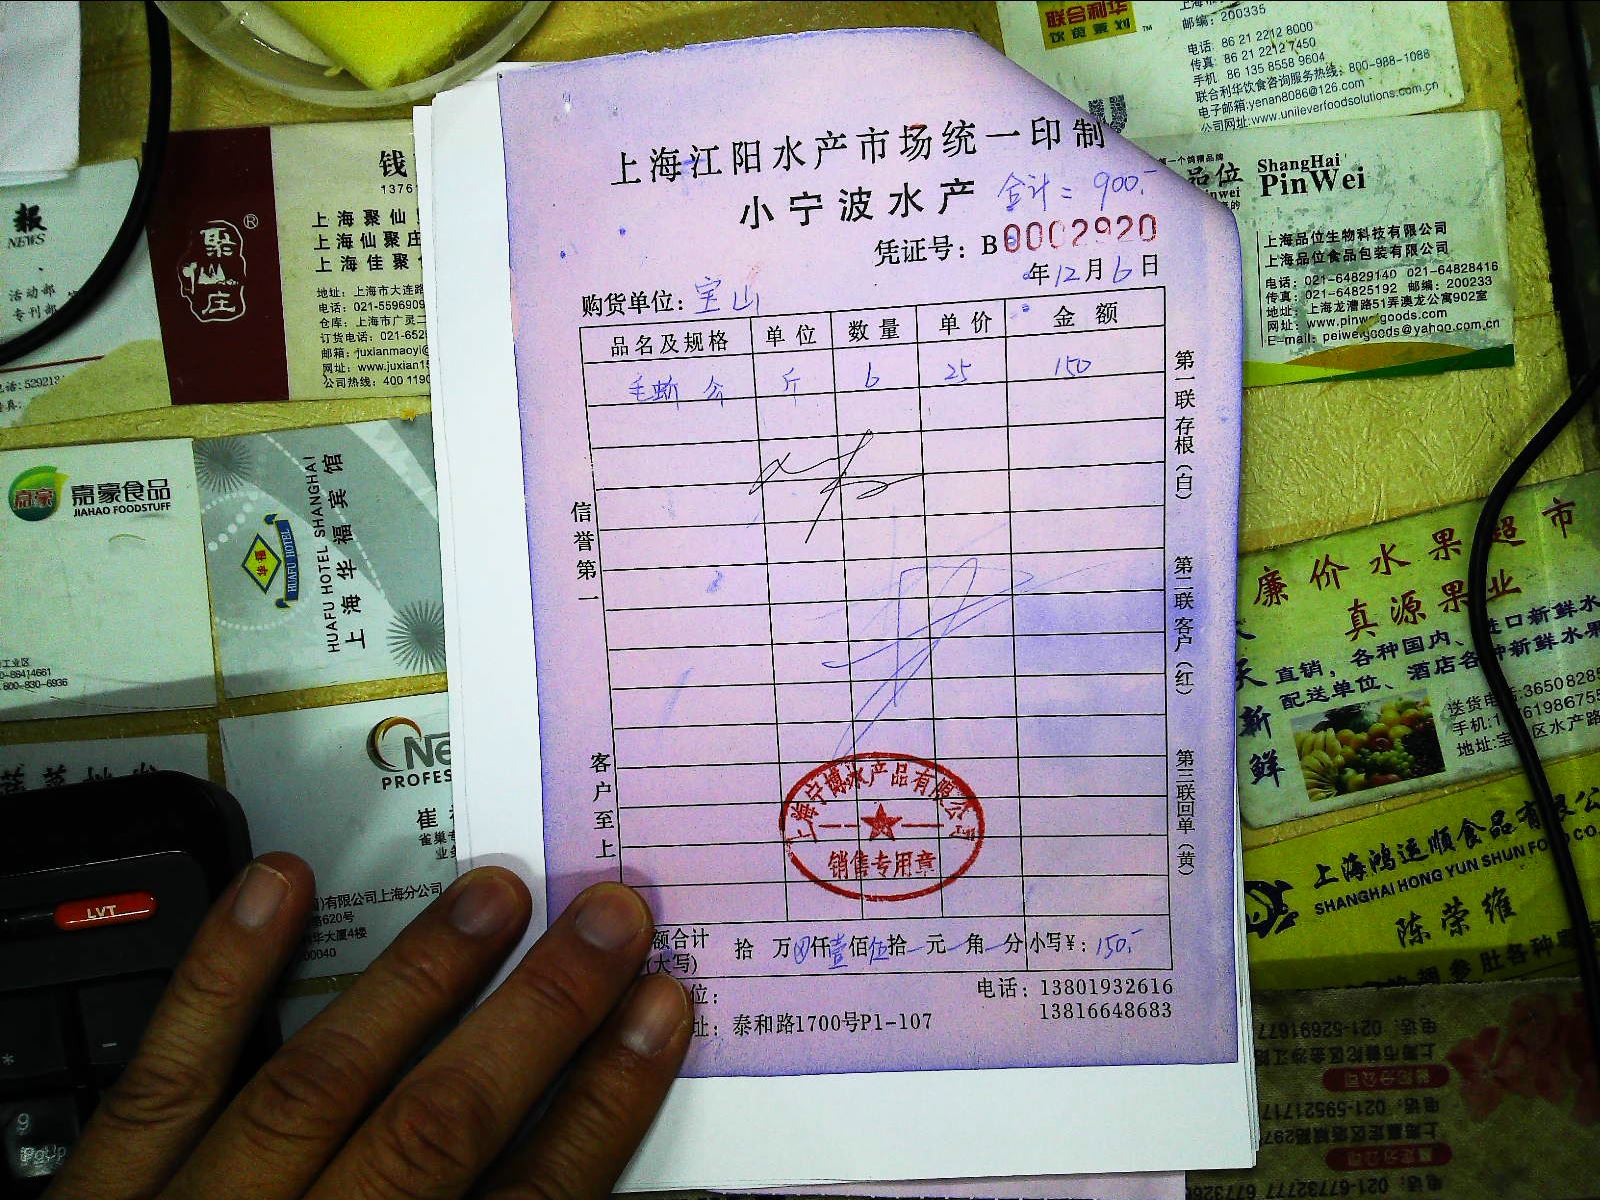 上海江阳水产市场统一印制
小宁波水产 合计=900.-
凭证号: B0002920
年12月6日
购货单位: 宝山
品名及规格 单位 数量 单价 金额
毛蚶 斤 6 25 150
信誉第一
客户至上
第一联存根(白)
第二联客户(红)
第三联回单(黄)
上海宁博水产品有限公司
销售专用章
额合计 拾 万 仟壹佰伍拾 元 角 分 小写¥: 150.-
(大写)
位:
电话: 13801932616
13816648683
址: 泰和路1700号P1-107
报
NEWS
活动部
专刊部
聚仙庄®
钱
1376
上海聚仙
上海仙聚庄
上海佳聚
地址: 上海市大连路
电话: 021-5596909
仓库: 上海市广灵二
订货电话: 021-652
邮箱: juxianmaoyi@
网址: www.juxian15
公司热线: 400 1190
嘉豪
嘉豪食品
JIAHAO FOODSTUFF
工业区
800-830-6936
华福
HUAFU HOTEL
HUAFU HOTEL SHANGHAI
上海华福宾馆
Ne
PROFES
崔
有限公司上海分公司
路620号
华大厦4楼
00040
LVT
9
PgUp
饮食策划™
邮编: 200335
电话: 86 21 2212 8000
传真: 86 21 2212 7450
手机: 86 135 8558 9604
联合利华饮食咨询服务热线: 800-988-1088
电子邮箱:yenan8086@126.com
公司网址:www.unileverfoodsolutions.com.cn
品位
ShangHai
PinWei
上海品位生物科技有限公司
上海品位食品包装有限公司
电话: 021-64829140 021-64828416
传真: 021-64825192 邮编: 200233
地址: 上海龙漕路51弄澳龙公寓902室
网址: www.pinweigoods.com
E-mail: peiweigoods@yahoo.com.cn
廉价水果超市
真源果业
新鲜
直销, 各种国内、进口新鲜水
配送单位、酒店各种新鲜水果
送货电话:3650828
地址:宝 区水产路
上海鸿运顺食品有限公
SHANGHAI HONG YUN SHUN FOOD CO.
陈荣维
电话: 021-52691677
电话: 021-59521717